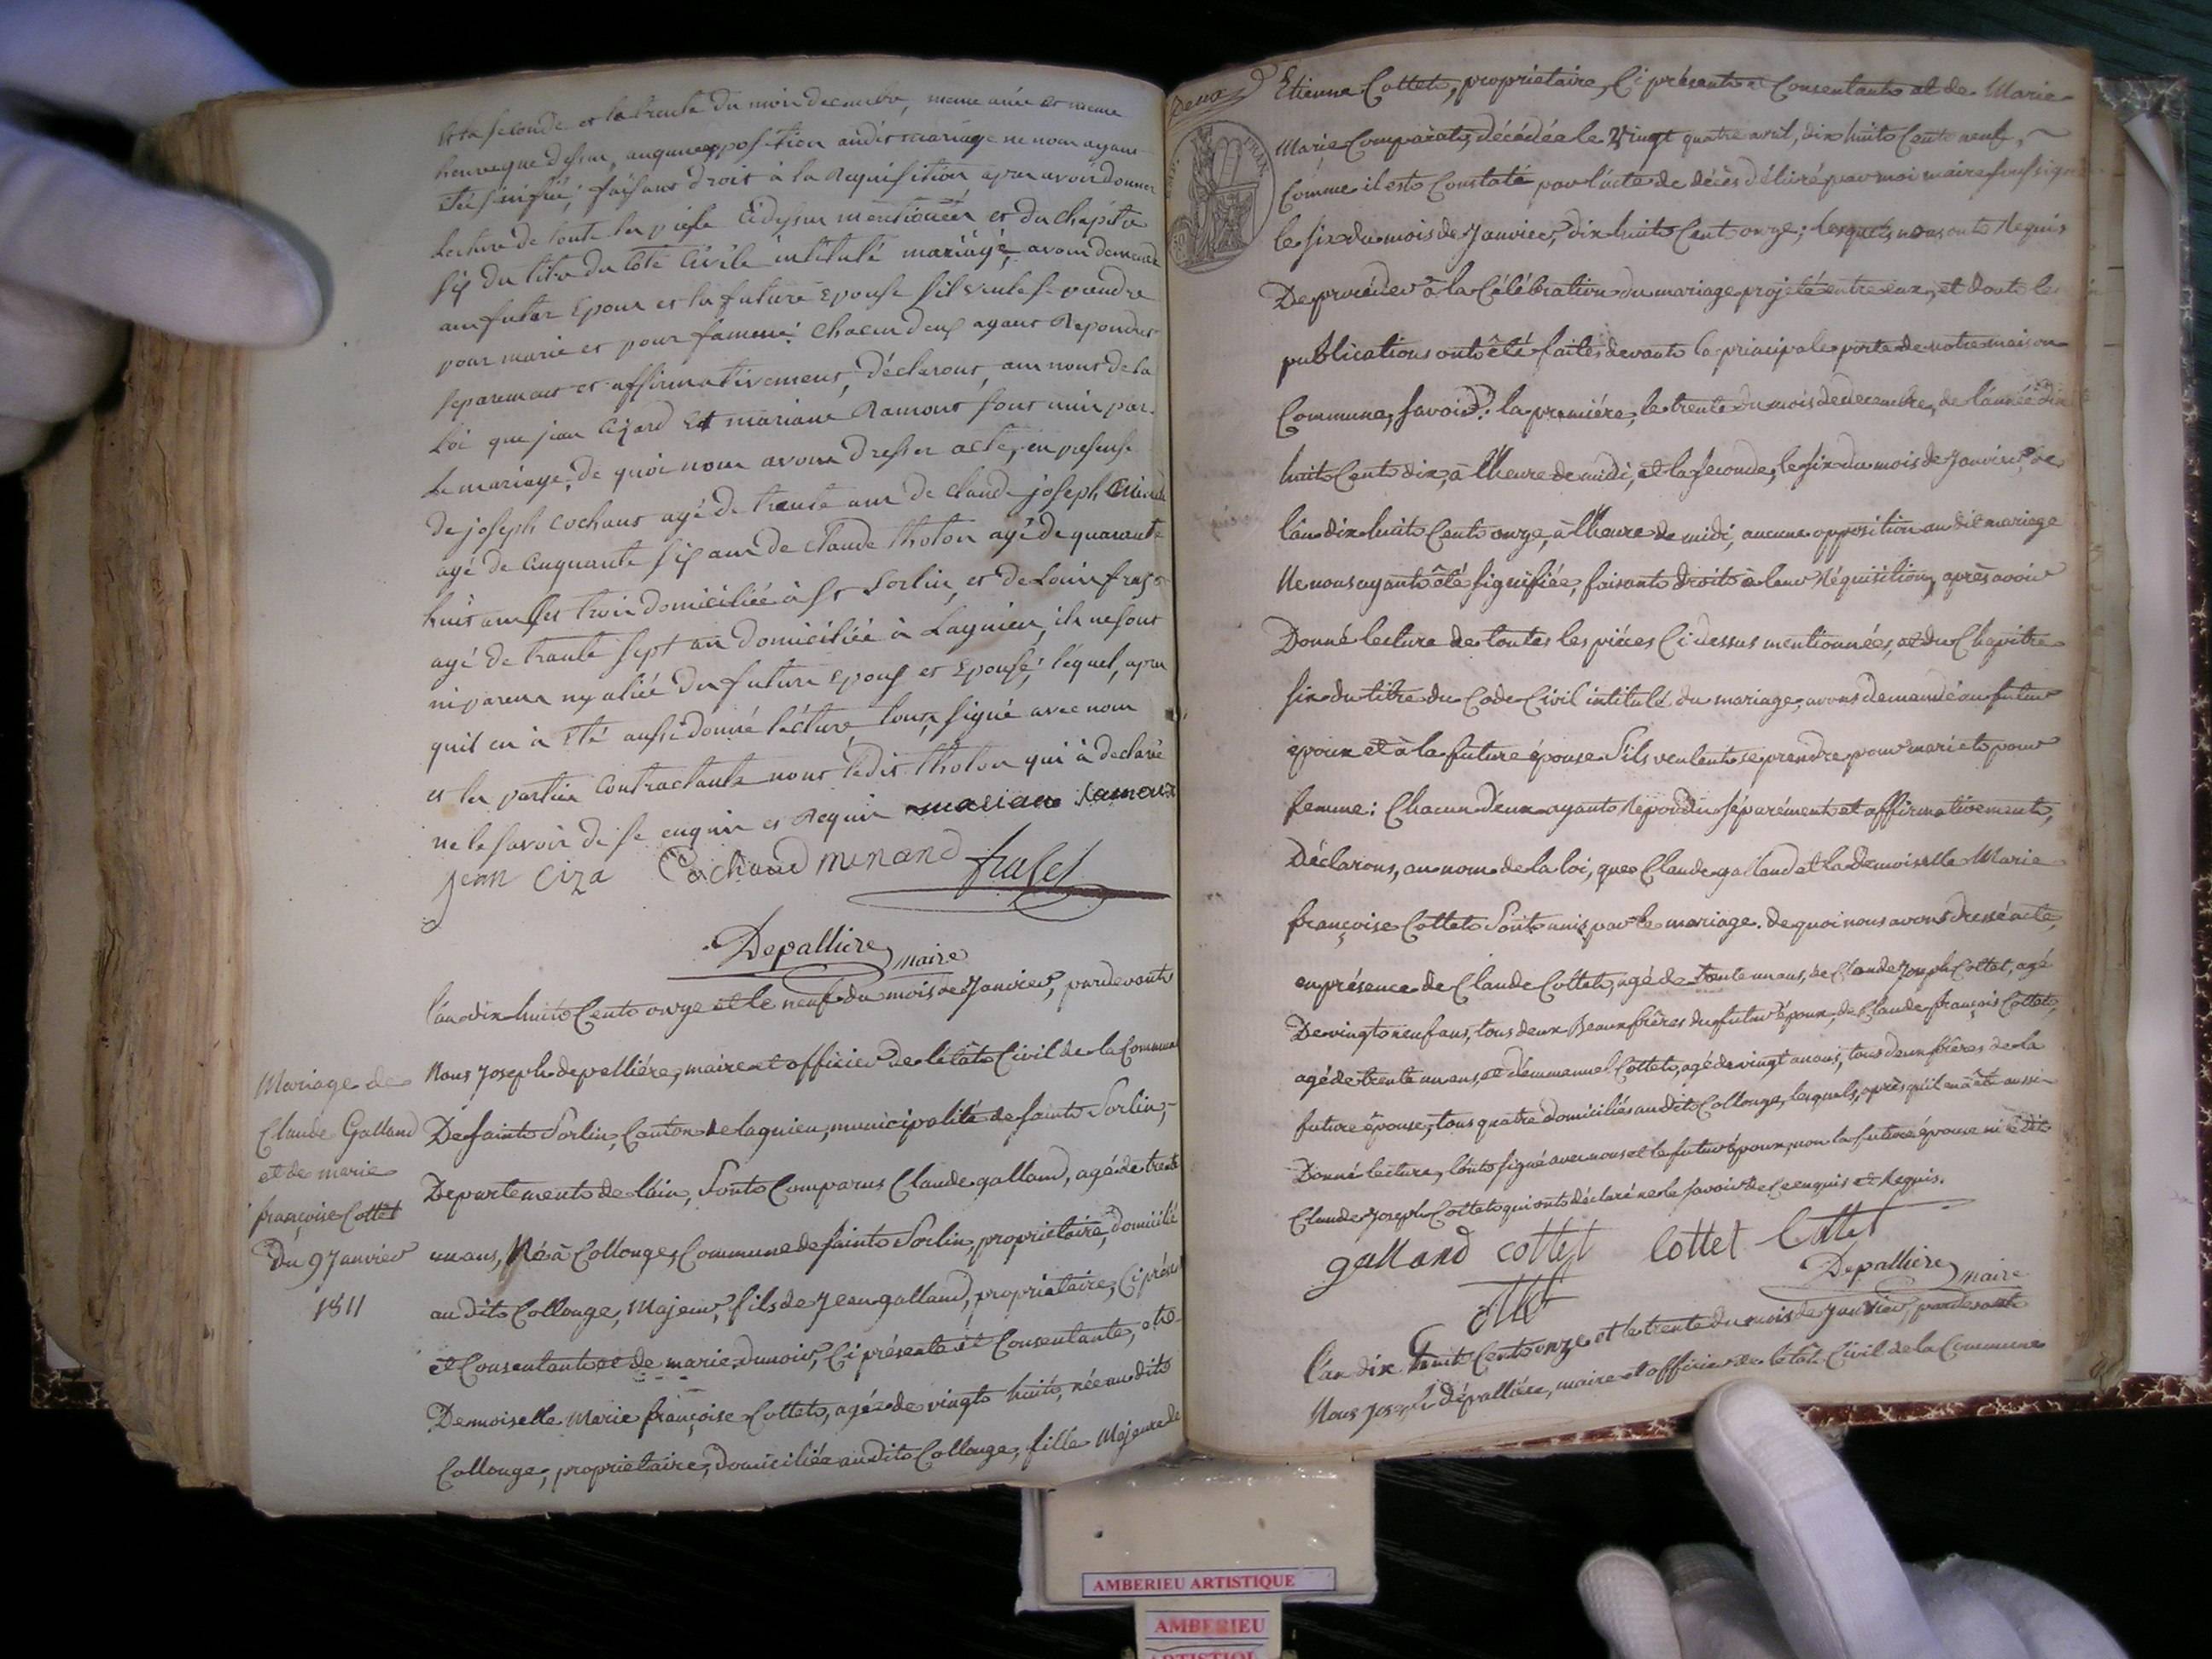 et la seconde et le trente du moi decembre, meme anée et meme
heure que dessu, aucune opposition audit mariage ne nous ayant
eté sinifiée; faisant droit à la Requisition apres avoir donner
Lecture de toute les piese Cidessu mentionéeu et du chapitre
six du titre du Code Civile intitulé mariage, avons demandé
aux futur Epoux et la future Epouse sil veule se prendre
pour marie et pour famme; chacun deux ayant Repondus
separement et affirmativement, déclarons, aux nons de la
Loi que jean Cizard Et mariane Ramout sont unir par
Le mariage, de quoi nous avons dresser acte, en presense
de joseph Cochaut agé de trente ans de Claude joseph
agé de Cinquante six ans de Claude tholon agé de quarante
huit ans les troix domiciliée à St Sorlin, et de Louis
agé de trante sept an domiciliée à Lagnieu, ils ne sont
ni parens ny aliée du future epoux et Epouse; léquel, apres
quil en à Eté aussi donné lécture, lons signé avec nous
et les partier contractante nont ledit tholon qui à déclaré
ne le savoir de se enquir et Requir mariane ramoux
jean Ciza Cochaud menand
Depalliere maire
l'an dix huit Cent onze et le neuf du mois de Janvier, pardevant
Nous Joseph depallière, maire et officier de l'état Civil de la Commune
De saint Sorlin, Canton de lagnieu, municipalité de saint Sorlin,
Departement de l'ain, Sont Comparus Claude galland, agé de trente
un ans, Né à Collonge, Commune de saint Sorlin, proprietaire, domicilié
au dit Collonge, Majeur, fils de Jean galland, proprietaire, Ci présent
et Consentant et de marie dunoir, Ci présente et Consentante, et
Demoiselle Marie françoise Cottet, agée de vingt huit, née au dit
Collonge, proprietaire, domiciliée audit Collonge, fille Majeure de
Mariage de
Claude Galland
et de marie
françoise Cottet
Du 9 Janvier
1811
Etienne Cottet, proprietaire, Ci présent et Consentant et de Marie
Marie Comparat, décédée le Vingt quatre avril, dix huit Cent neuf,
Comme il est Constaté par l'acte de décès délivré par moi maire soussigné
le six du mois de Janvier, dix huit Cent onze; lesquels nous ont Requis
De procéder à la Célébration du mariage projeté entre eux, et dont les
publications ont été faites devant la principale porte de notre maison
Commune, savoir: la première, le trente du mois de decembre, de l'année dix
huit Cent dix, à l'heure de midi, et la seconde, le six du mois de Janvier, de
l'an dix huit Cent onze, à l'heure de midi, aucune opposition au dit mariage
Ne nous ayant été signifiée, faisant droit à leur Réquisition, après avoir
Donné lecture de toutes les pièces Ci dessus mentionnées, et du Chapitre
six du titre du Code Civil intitulé du mariage, avons demandé au futur
époux et à la future épouse S'ils veulent se prendre pour mari et pour
femme: Chacun d'eux ayant Repondu séparément et affirmativement,
Déclarons, au nom de la loi, que Claude galland et la Demoiselle Marie
françoise Cottet Sont unis par le mariage. de quoi nous avons dressé acte,
en présence de Claude Cottet, agé de trente un ans, de Claude Joseph Cottet, agé
De vingt neuf ans, tous deux Beaux frères du futur époux, de Claude françois Cottet,
agé de trente un ans, et d'emmanuel Cottet, agé de vingt un ans, tous deux frères de la
future épouse, tous quatre domiciliés au dit Collonge, lesquels, après qu'il en a été aussi
Donné lecture, l'ont signé avec nous et le futur époux, non la future épouse ni le dit
Claude Joseph Cottet qui ont déclaré ne le savoir de Ce enquis et Requis.
galland cottet Cottet Cottet
Depalliere maire
l'an dix huit Cent onze et le trente du mois de Janvier, pardevant
Nous Joseph dépallière, maire et officier de l'état Civil de la Commune
AMBERIEU ARTISTIQUE
AMBERIEU
ARTISTIQUE